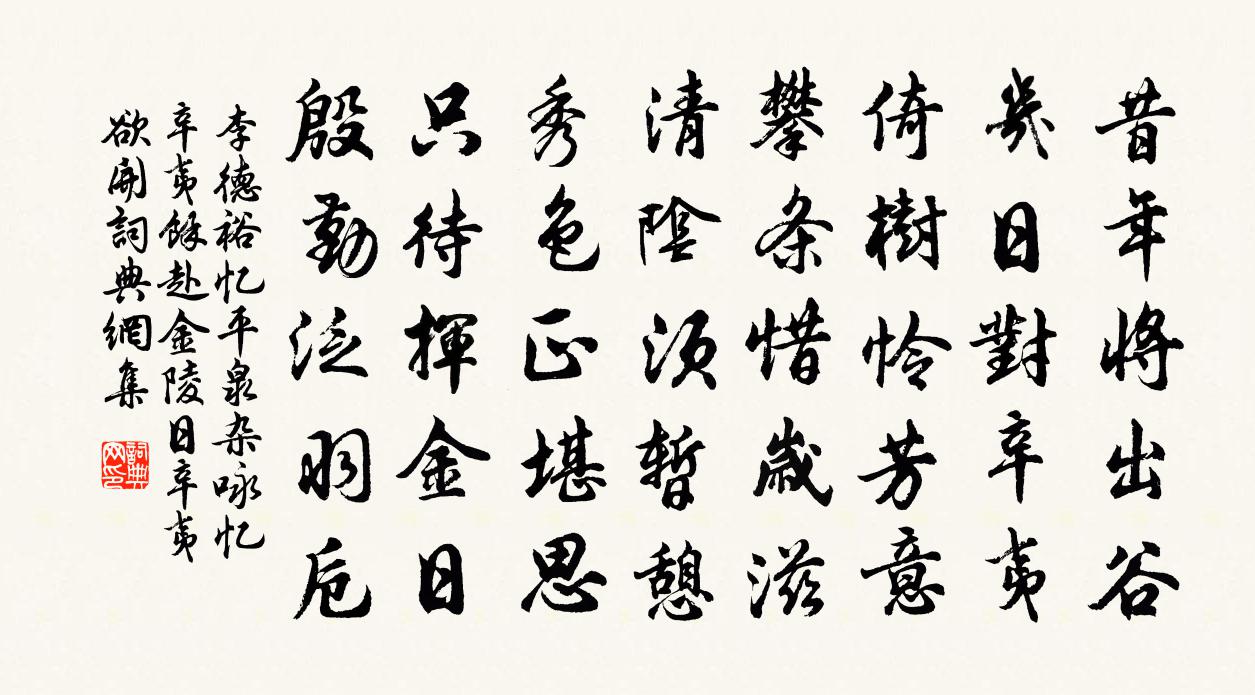 昔年將出谷
幾日對辛夷
倚樹怜芳意
攀条惜歲滋
清陰須暫憩
秀色正堪思
只待揮金日
殷勤泛羽卮
李德裕忆平泉杂咏忆
辛夷餘赴金陵日辛夷
欲開詞典網集
詞典
网印